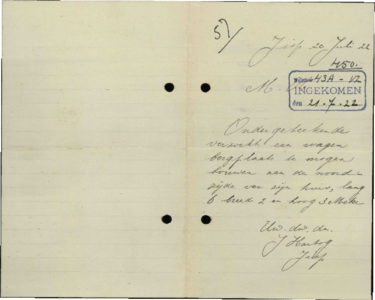 57
Jisp 20 Juli 22
450.
43A - VZ
M.
INGEKOMEN
den 21.7.22
Ondergeteekende
verzoekt een wagen
bergplaats te mogen
bouwen aan de noord-
zijde van zijn huis, lang
6 breed 2 en hoog 3 Meter
Uw. dw. dn.
J Hartog
Jisp